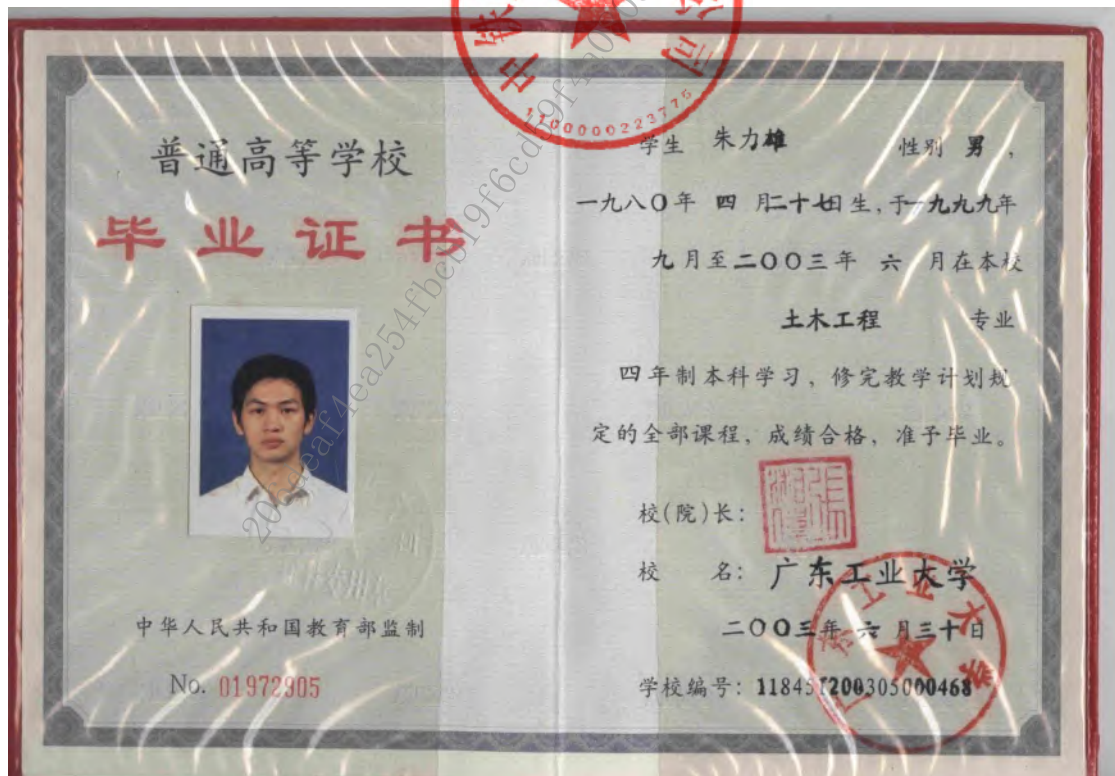 普通高等学校
毕业证书
中华人民共和国教育部监制
No. 01972905
学生 朱力雄 性别 男,
一九八〇年 四 月二十七日生,于一九九九年
九月至二〇〇三年 六 月在本校
土木工程 专业
四年制本科学习,修完教学计划规
定的全部课程,成绩合格,准予毕业。
校(院)长:
校 名: 广东工业大学
二〇〇三年 六 月三十日
学校编号: 118451200305000468
广东工业大学
1100000223775